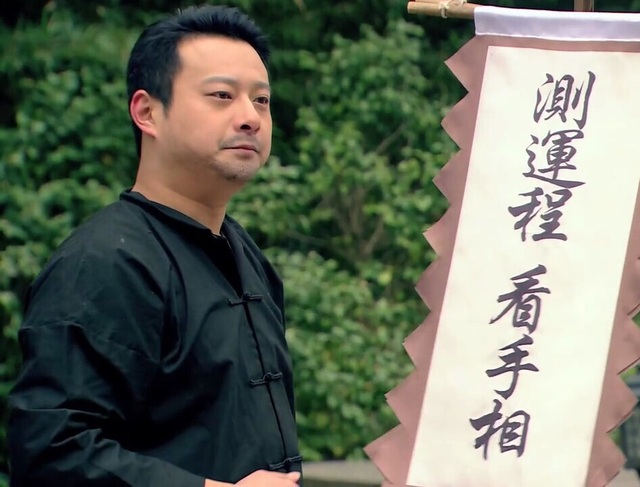 測運程 看手相